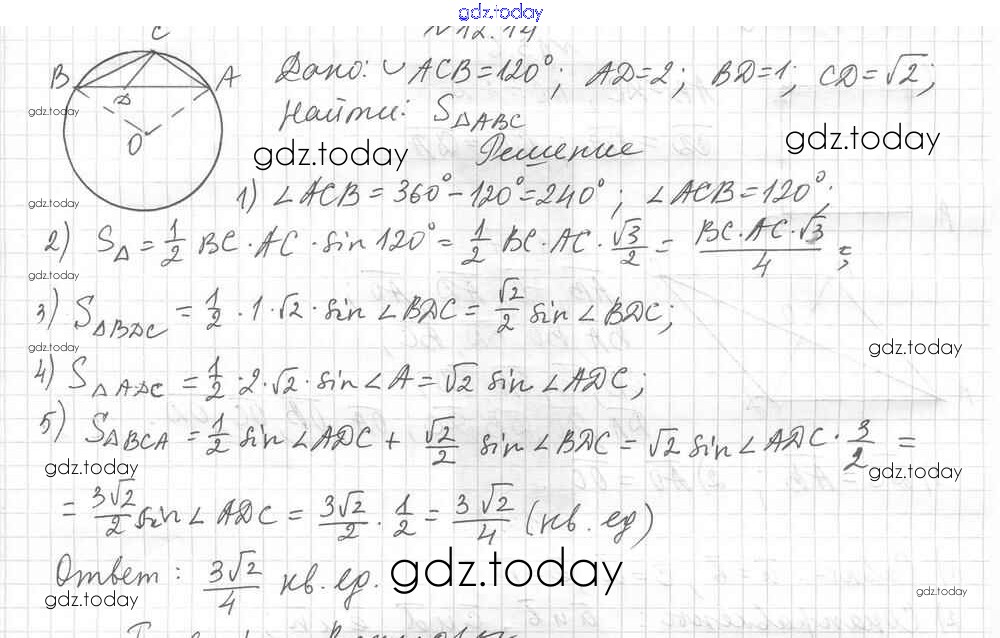 gdz.today
N 12.14
C
B
A
D
O
Дано: ◡ACB = 120°; AD = 2; BD = 1; CD = √2;
gdz.today
Найти: S△ABC
gdz.today
gdz.today
Решение
gdz.today
1) ∠ACB = 360° − 120° = 240°; ∠ACB = 120°;
2) S△ = 1/2 BC · AC · sin 120° = 1/2 BC · AC · √3/2 = BC · AC · √3/4;
gdz.today
3) S△BDC = 1/2 · 1 · √2 · sin ∠BDC = √2/2 sin ∠BDC;
gdz.today
gdz.today
4) S△ADC = 1/2 · 2 · √2 · sin ∠A = √2 sin ∠ADC;
5) S△BCA = 1/2 sin ∠ADC + √2/2 sin ∠BDC = √2 sin ∠ADC · 3/2 =
gdz.today
gdz.today
= 3√2/2 sin ∠ADC = 3√2/2 · 1/2 = 3√2/4 (кв. ед)
Ответ: 3√2/4 кв. ед.
gdz.today
gdz.today
gdz.today